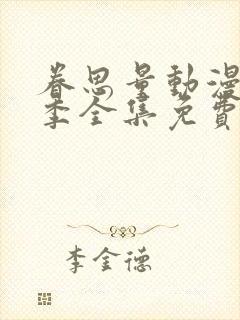 眷思量動漫
季全集免費
李金德